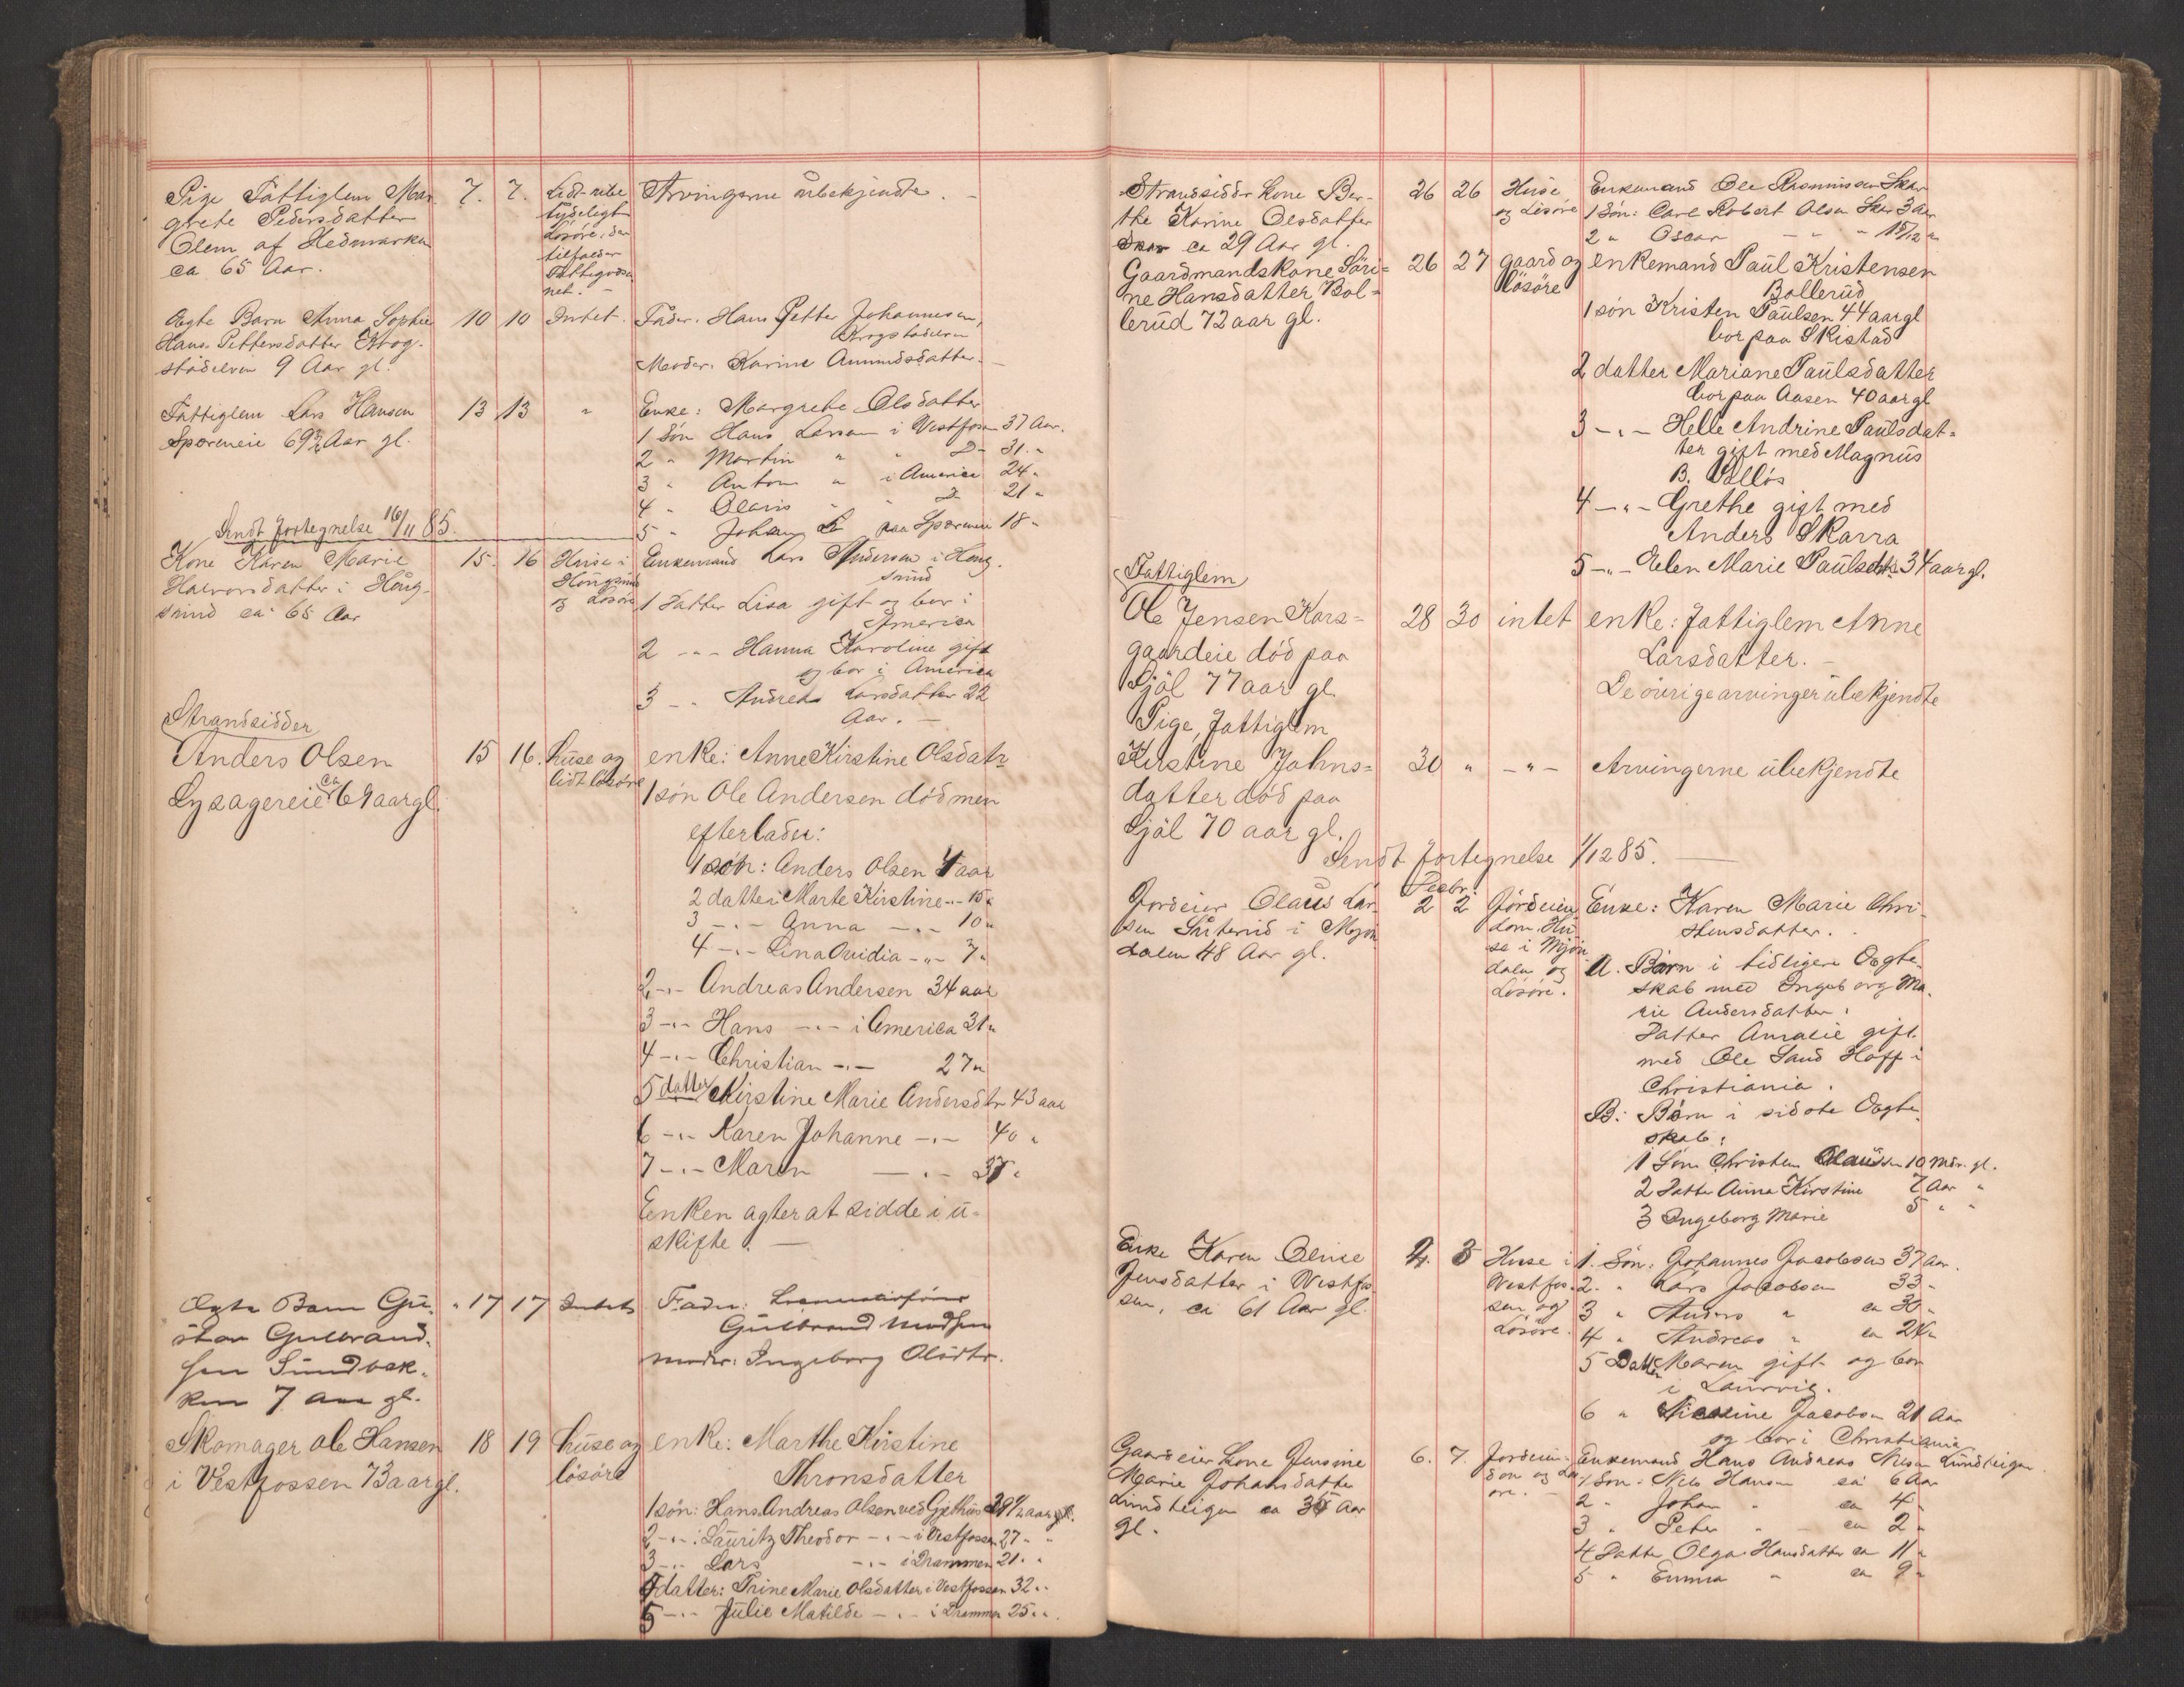 Pige Fattiglem Mar
grete Pedersdatter
Olem af Hedmarken
ca 65 Aar.
7. 7.
Lidt ube
tydeligt
Lösöre, der
tilfalder
Fattigvæse
net. -
Arvingerne übekjendte. -
Ægte Barn Anna Sophie
Hans Pettersdatter Krog-
stadelven 9 Aar gl.
10 10 Intet.
Fader. Hans Petter Johannesen,
Krogstadelven
Moder. Karine Amundsdatter. -
Fattiglem Lars Hansen
Sporeneie 69½ Aar gl.
13 13 "
Enke: Margrethe Olsdatter
1 Sön Hans Larsen i Vestfossen 37 Aar.
2 " Martin " " D- 31. "
3 " Anton " i America 24 "
4 " Olavis " " D 21 "
5 " Johan paa Sporeneie 18 "
Sendt Fortegnelse 16/11 85.
Kone Karen Marie
Halvorsdatter i Houg-
sund ca 65 Aar
15. 16
Huse i
Hougsund
og Lösöre
Enkemand Lars Andersen i Houg-
sund
1 Datter Lisa gift og bor i
America
2 -"- Hanna Karoline gift
og bor i America
3 -"- Andrea Larsdatter 22
Aar. -
Strandsidder
Anders Olsen
Lysagereie ca 69 aar gl.
15 16.
huse og
lidt lösöre
enke: Anne Kirstine Olsdatr
1 sön Ole Andersen död men
efterlader:
1 sön: Anders Olsen 4 aar
2 datter: Marte Kirstine -"- 15 "
3 -"- Anna -"- 10 "
4 -"- Lina Ovidia -"- 7 "
2 -"- Andreas Andersen 34 aar
3 -"- Hans -"- i America 31 "
4 -"- Christian -"- 27 "
5 datter Kirstine Marie Andersdtr 43 aar
6 -"- Karen Johanne -"- 40 "
7 -"- Maren -"- 37 "
Enken agter at sidde i u-
skifte. -
Ægte Barn Gu-
stav Gulbrand-
sen Sundbak-
ken 7 aar gl.
" 17 17 Intet
Fader:
Gulbrand Madsen
moder: Ingeborg Olsdtr.
Skomager Ole Hansen
i Vestfossen 73 aar gl.
18 19
huse og
lösöre
enke: Marthe Kirstine
Thronsdatter
1 sön: Hans Andreas Olsen ved Gjethus 39½ aar gl.
2 -"-: Lauritz Theodor -"- i Vestfossen 27 " "
3 -"- Lars -"- i Drammen 21. "
4 datter: Trine Marie Olsdatter i Vestfossen 32 "
5 -"- Julie Matilde -"- i Drammen 25 "
Strandsidder kone Ber-
the Karine Olsdatter
Skar ca 29 Aar gl.
26 26
Huse
og Lösöre
Enkemand Ole Rasmussen Skar
1 Sön: Carl Robert Olsen Skar 3 Aar
2 " Oscar - " " 15/12 "
Gaardmandskone Söri-
ne Hansdatter Bol-
lerud 72 aar gl.
26 27
gaard og
lösöre
enkemand Paul Kristensen
Bollerud
1 sön Kristen Paulsen 44 aar gl
bor paa Skistad
2 datter Mariane Paulsdatter
bor paa Aasen 40 aar gl
3 -"- Helle Andrine Paulsdat-
ter gift med Magnus
B.
4 -"- Grethe gift med
Anders Skarra
5 -"- Elen Marie Paulsdtr 34 aar gl.
Fattiglem
Ole Jensen Kors-
gaardeie död paa
Fjöl 77 aar gl.
28 30 intet
enke: fattiglem Anne
Larsdatter. -
De övrige arvinger ubekjendte
Pige, fattiglem
Kirstine Johns-
datter död paa
Fjöl 70 aar gl.
30 " -"-
Arvingerne ubekjendte
Sendt Fortegnelse 1/12 85. -
Decbr.
Jordeier Olaus Lar-
sen Sæterud i Mjön-
dalen 48 Aar gl.
2 2
Jordeien
dom, Hu-
se i Mjön
dalen og
Lösöre.
Enke: Karen Marie Chri-
stensdatter.
A. Börn i tidligere Ægte-
skab med Ingeborg Ma-
rie Andersdatter:
Datter Amalie gift
med Ole Sand Hoff i
Christiania.
B: Börn i sidste Ægte-
skab:
1 Sön Christen Olaussen 10 Mdr. gl.
2 Datter Anna Kirstine 7 Aar "
3 Ingeborg Marie 5 " "
Enke Karen Oline
Jensdatter i Vestfos-
sen, ca 61 Aar gl.
2. 3
Huse i
Vestfos-
sen og
Lösöre.
1. Sön: Johannes Jacobsen 37 Aar.
2. " Lars Jacobsen 33 -
3 " Anders " ca 30 "
4 " Andreas " ca 24 "
5 Datter Maren gift og bor
i Laurvig.
6 " Jacobsen 21 Aar
og bor i Christiania
Gaardeier kone Jensine
Marie Johansdatter
Lundteigen ca 35 Aar
gl.
6. 7.
Jordeien-
dom og Lös-
öre. -
Enkemand Hans Andreas Nilsen Lundteigen
1 Sön. Nils Hansen ca 6 Aar
2 " Johan " ca 4 "
3 " Peter " - ca 2 "
4 Datter Olga Hansdatter ca 11 "
5 " Emma " ca 9 "